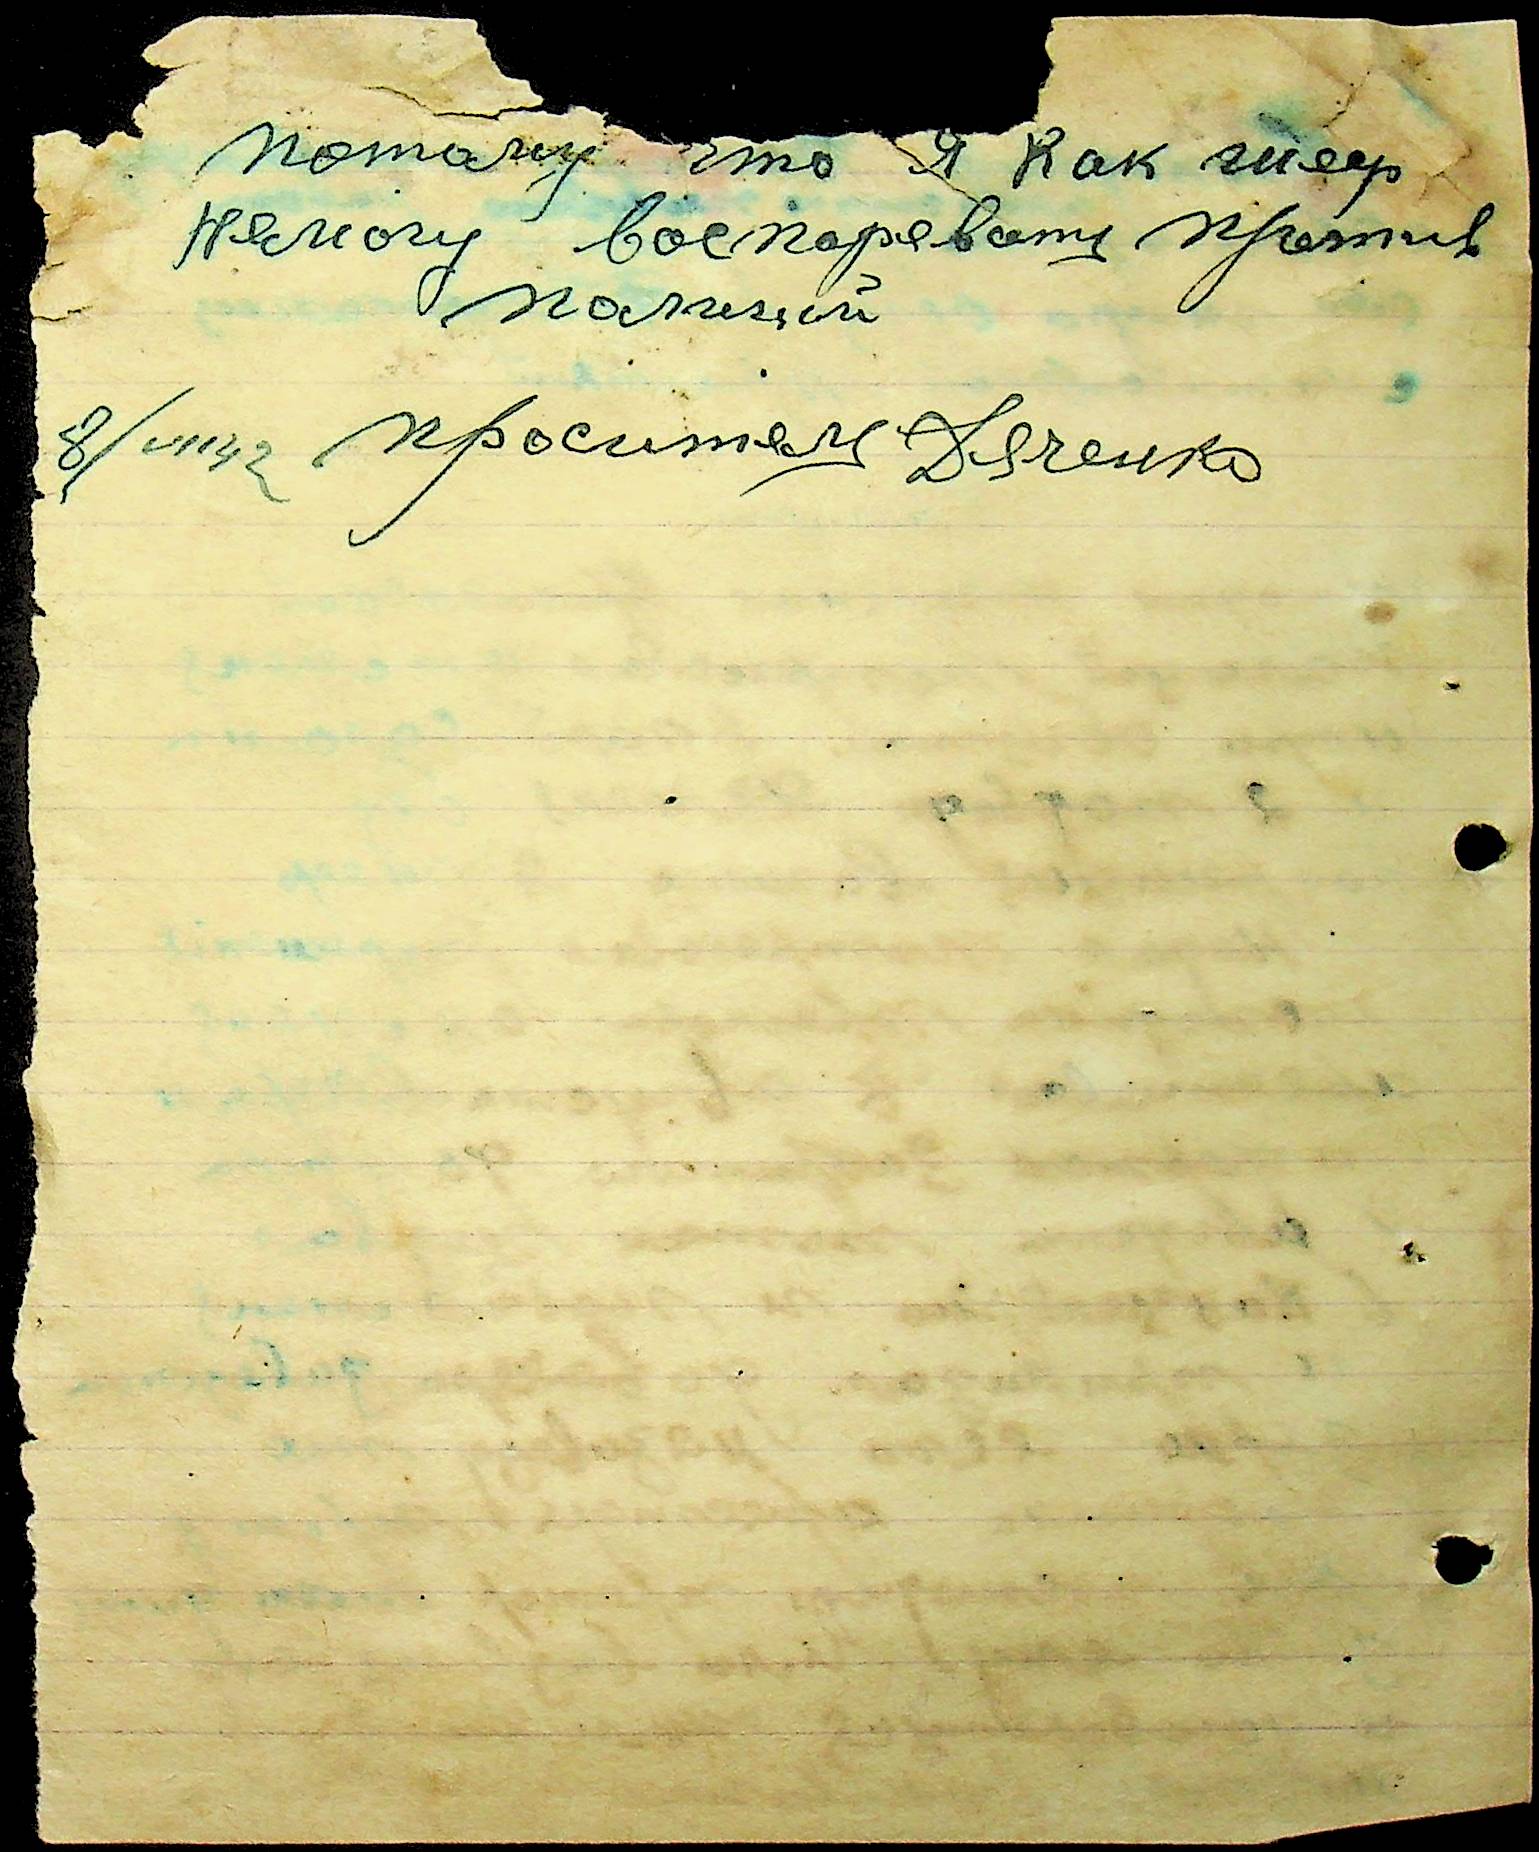 потому что я как
немогу воспоревать против
полицой
8/VIII42 проситель Дяченко